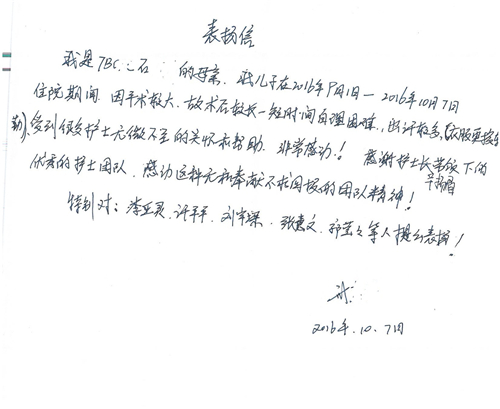 表扬信
我是7BC 石 的母亲,我儿子在2016年9月1日—2016年10月7日
住院期间,因手术较大,故术后较长一短时间自理困难,出汗较多(衣服更换
勤),受到很多护士无微不至的关怀和帮助,非常感动!感谢护士长带领下的
优秀的护士团队,感动这种无私奉献不求回报的团队精神!辛楊眉
特别对:李 灵、许平平、刘 、张惠文、 等人提出表扬!
2016年.10.7日